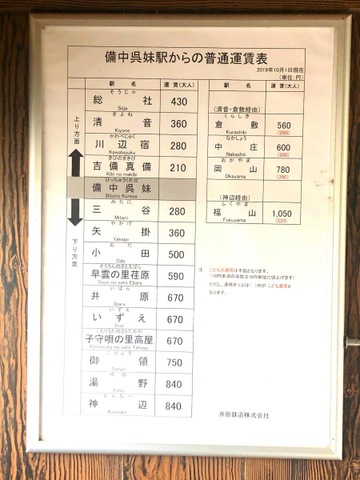 備中呉妹駅からの普通運賃表
2019年10月1日現在
(単位 円)
駅 名 運 賃(大人)
そうじゃ
総社 430
Soja
きよね
清音 360
Kiyone
かわべじゅく
川辺宿 280
Kawabejuku
きびのまきび
吉備真備 210
Kibi no makibi
びっちゅうくれせ
備中呉妹
Bitchū Kurese
みたに
三谷 280
Mitani
やかげ
矢掛 360
Yakage
おだ
小田 500
Oda
早雲の里荏原 590
Soun no sato Ebara
いばら
井原 670
Ibara
いずえ 670
Izue
子守唄の里高屋 670
Komoriuta no sato Takaya
ごりょう
御領 750
Goryo
ゆの
湯野 840
Yuno
かんなべ
神辺 840
Kannabe
上り方面
下り方面
駅 名 運 賃(大人)
(清音・倉敷経由)
くらしき
倉敷 560
Kurashiki (280)
なかしょう
中庄 600
Nakasho (300)
おかやま
岡山 780
Okayama (390)
(神辺経由)
ふくやま
福山 1,050
Fukuyama (520)
注 こどもの運賃は半額となります。
井原鉄道株式会社